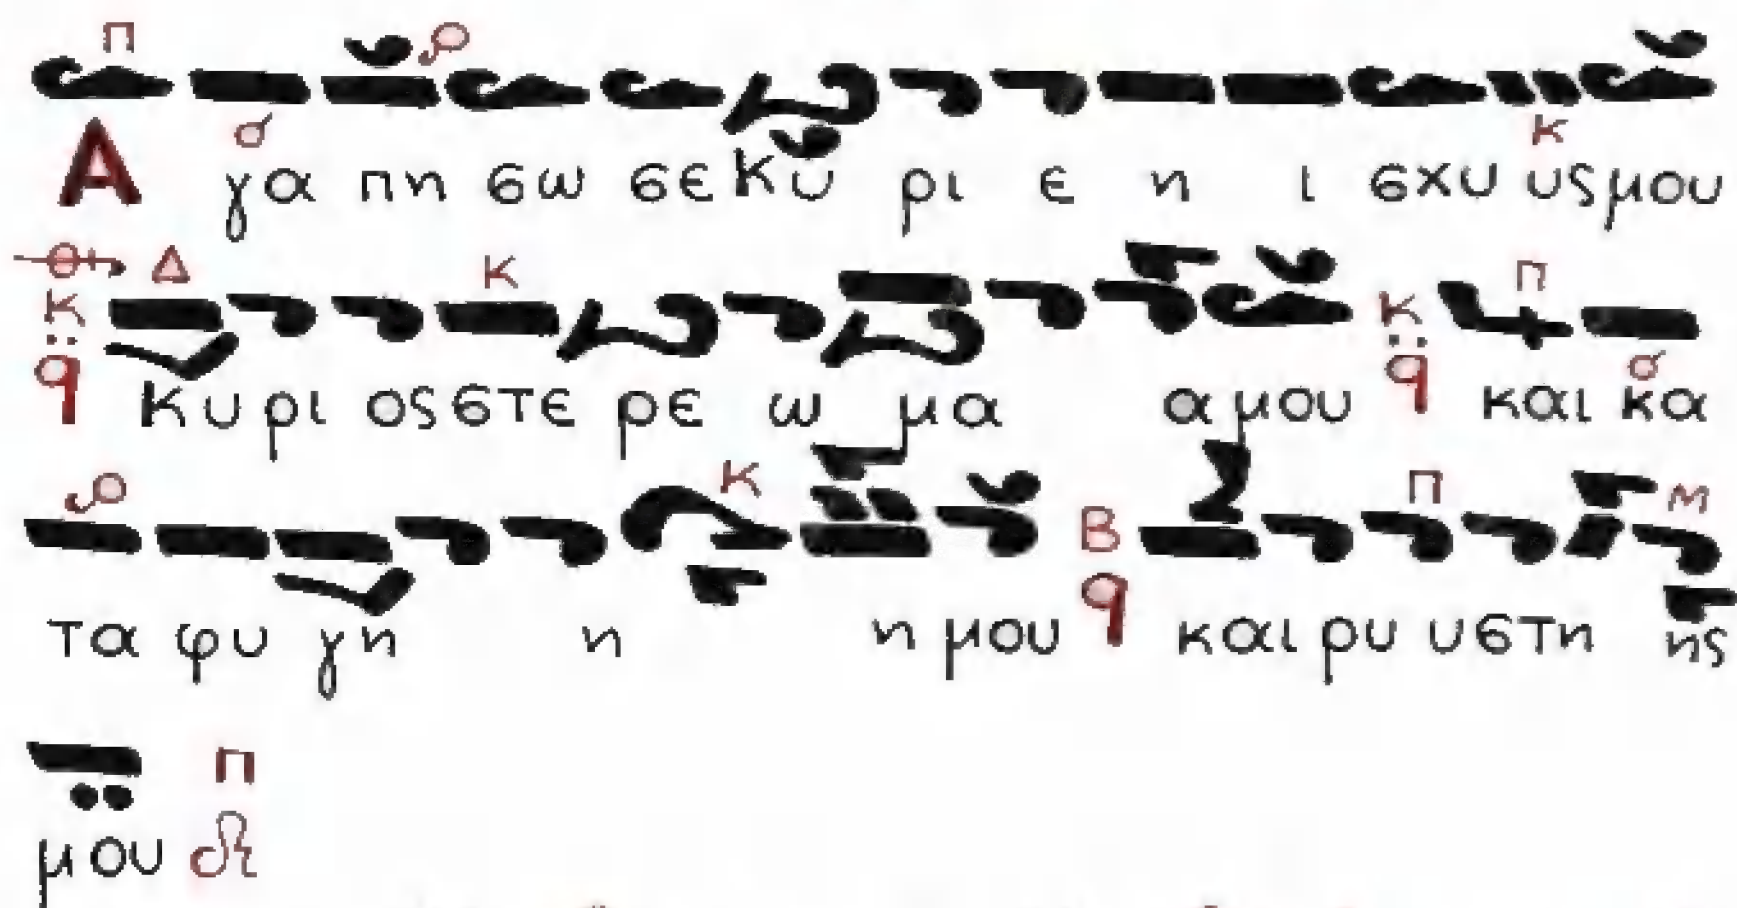 Α γα πη σω σε Κυ ρι ε η ι σχυ υς μου
Κυ ρι ος στε ρε ω μα α μου και κα
τα φυ γη η η μου και ρυ υ στη ης
μου